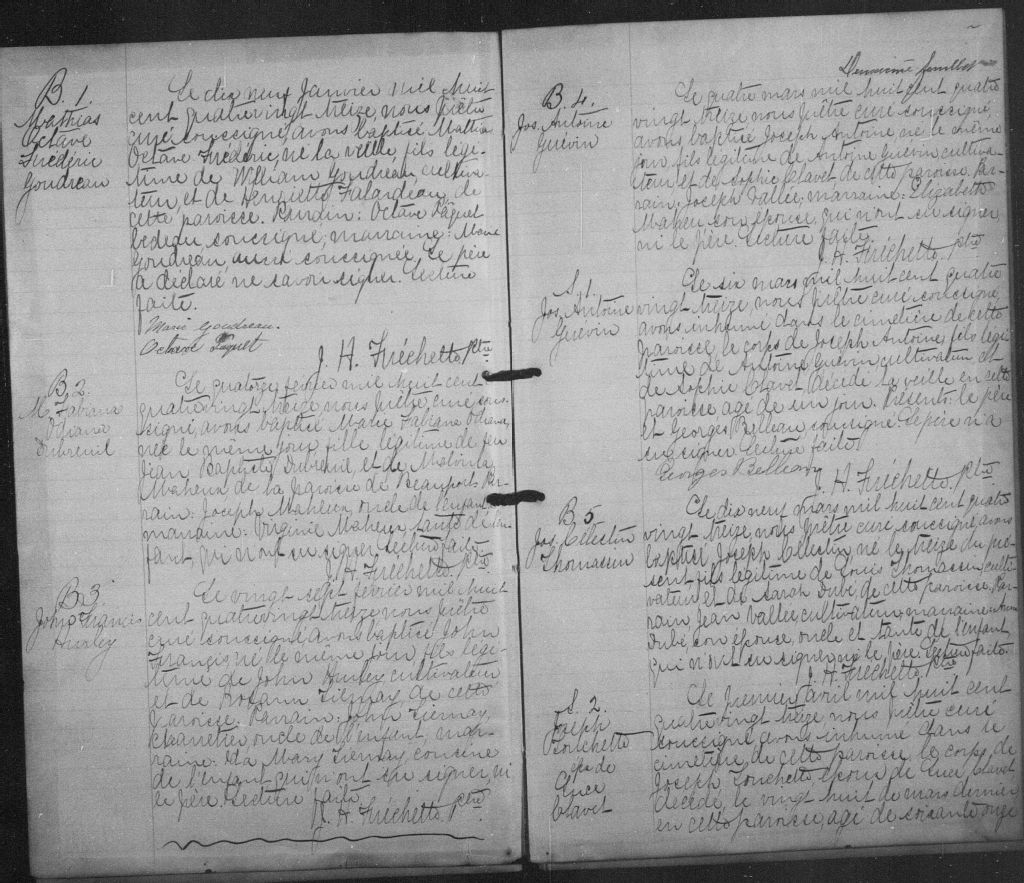 B. 1.
Mathias
Octave
Frédéric
Goudreau
Le dix neuf Janvier mil huit
cent quatre vingt treize nous prêtre
curé soussigné, avons baptisé Mathias
Octave Frédéric, né la veille, fils légi-
time de William Goudreau, cultiva-
teur, et de Henriette Falardeau, de
cette paroisse. Parrain: Octave Paquet
bedeau soussigné; marraine: Marie
Goudreau, aussi soussignée, Le père
a déclaré ne savoir signer. Lecture
faite.
Marie Goudreau.
Octave Paquet
J. H. Fréchette Ptre
B. 2.
M. Fabiana
Dubreuil
Le quatorze février mil huit cent
quatre vingt treize nous prêtre, curé sous-
signé, avons baptisé Marie Fabiane
née le même jour fille légitime de feu
Jean Baptiste Dubreuil, et de Malvina
Maheux de la paroisse de Beauport. Par-
rain: Joseph Maheux, oncle de l'enfant
marraine: Virginie Maheux, tante de l'en-
fant, qui n'ont su signer. Lecture faite
J. H. Fréchette Ptre
B. 3.
John Francis
Hurley
Le vingt sept février mil huit
cent quatre vingt treize nous prêtre
curé soussigné avons baptisé John
Francis né le même jour fils légi-
time de John Hurley cultivateur
et de Rosann Tiernay, de cette
paroisse. Parrain: John Tiernay,
charretier, oncle de l'enfant, mar-
raine: Mary Tiernay, cousine
de l'enfant qui n'ont su signer, ni
le père. Lecture faite
J. H. Fréchette Ptre
Deuxième feuillet
B. 4.
Jos. Antoine
Guérin
Le quatre mars mil huit cent quatre
vingt treize, nous prêtre curé soussigné,
avons baptisé Joseph Antoine né le même
jour fils légitime de Antoine Guérin cultiva-
teur et de Sophie Clavet de cette paroisse. Par-
rain: Joseph Vallée; marraine: Elizabeth
Maheu son épouse, qui n'ont su signer
ni le père. Lecture faite
J. H. Fréchette Ptre
S. 1.
Jos. Antoine
Guérin
Le six mars mil huit cent quatre
vingt treize, nous prêtre curé soussigné,
avons inhumé dans le cimetière de cette
paroisse le corps de Joseph Antoine, fils légi-
time de Antoine Guérin, cultivateur et
de Sophie Clavet, décédé la veille en cette
paroisse agé de un jour. Présents: le père
et Georges Belleau soussigné. Le père n'a
su signer. Lecture faite
Georges Belleau
J. H. Fréchette Ptre
B. 5
Jos. Célestin
Thomassin
Le dix neuf mars mil huit cent quatre
vingt treize, nous prêtre curé soussigné, avons
baptisé Joseph Célestin né le treize du pré-
sent fils légitime de Louis Thomassin culti-
vateur et de Sarah Dubé, de cette paroisse. Par-
rain Jean Vallée cultivateur marraine
Dubé, son épouse, oncle et tante de l'enfant
qui n'ont su signer ni le père. Lecture faite.
J. H. Fréchette Ptre
S. 2.
Joseph
Touchette
eps de
Luce
Clavet
Le premier avril mil huit cent
quatre vingt treize nous prêtre curé
soussigné avons inhumé dans le
cimetière de cette paroisse, le corps de
Joseph Touchette époux de Luce Clavet
décédé, le vingt huit de mars dernier
en cette paroisse, agé de soixante onze